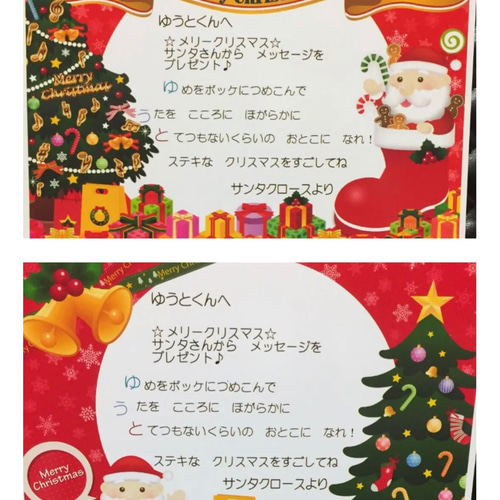 ゆうとくんへ
☆メリークリスマス☆
サンタさんから メッセージを
プレゼント♪
ゆめをポッケにつめこんで
うたを こころに ほがらかに
とてつもないくらいの おとこに なれ！
ステキな クリスマスをすごしてね
サンタクロースより
Merry
Christmas
Merry Christmas
Merry Christmas
ゆうとくんへ
☆メリークリスマス☆
サンタさんから メッセージを
プレゼント♪
ゆめをポッケにつめこんで
うたを こころに ほがらかに
とてつもないくらいの おとこに なれ！
ステキな クリスマスをすごしてね
サンタクロースより
Merry
Christmas